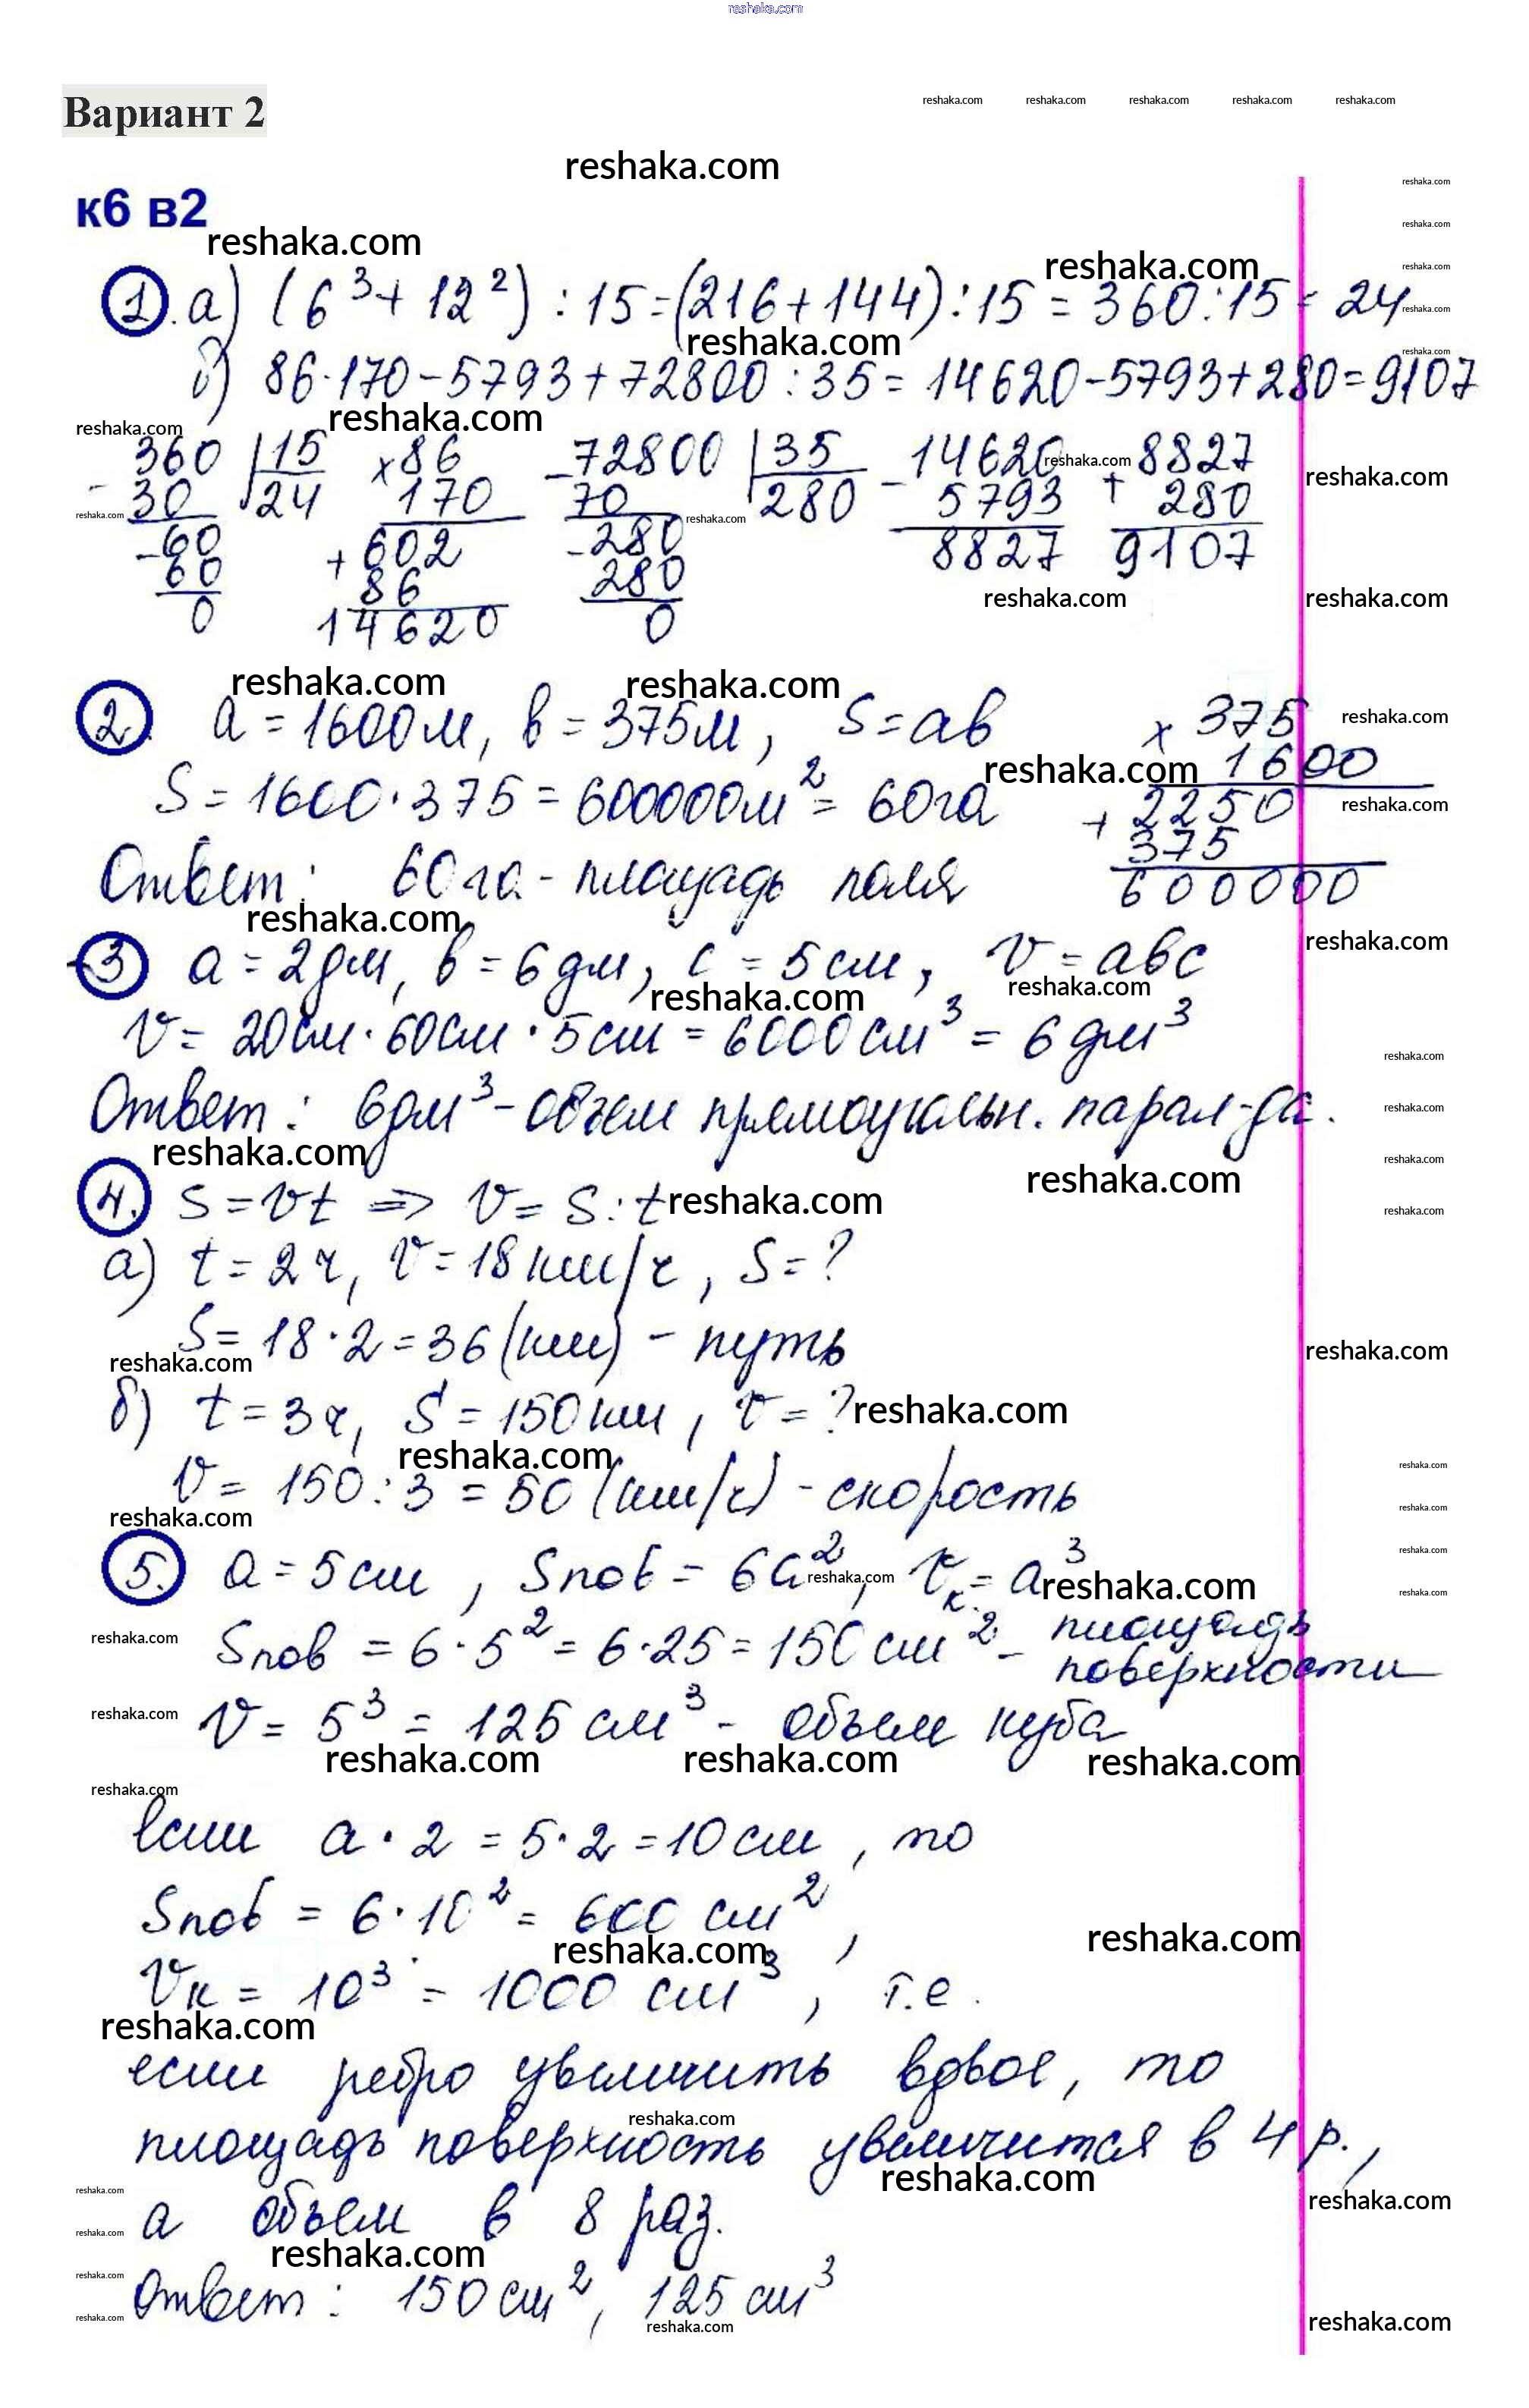 reshaka.com
Вариант 2
reshaka.com reshaka.com reshaka.com reshaka.com reshaka.com
reshaka.com
к6 в2
reshaka.com
1. а) (6³+12²):15=(216+144):15=360:15=24
б) 86·170-5793+72800:35=14620-5793+280=9107
360 |15 ×86 -72800 |35 -14620 +8827
-30 24 170 70 280 5793 280
-60 +602 -280 8827 9107
60 86 280
0 14620 0
2. а=1600м, в=375м, S=ав ×375
1600
S=1600·375=600000м²=60га +2250
375
Ответ: 60га-площадь поля 600000
3 а=2дм, в=6дм, с=5см, V=авс
V=20см·60см·5см=6000см³=6дм³
Ответ: 6дм³-объем прямоугольн. парал-да.
4. S=Vt => V=S:t
а) t=2ч, V=18км/ч, S=?
S=18·2=36(км) - путь
б) t=3ч, S=150км, V=?
V=150:3=50(км/ч)-скорость
5. а=5см, Sпов=6а², Vк=а³
Sпов=6·5²=6·25=150см²- площадь
поверхности
V=5³=125см³- объем куба
reshaka.com reshaka.com reshaka.com
если а·2=5·2=10см, то
Sпов=6·10²=600 см²,
Vк=10³=1000 см³, т.е.
если ребро увеличить вдвое, то
площадь поверхность увеличится в 4 р.,
а объем в 8 раз.
Ответ: 150см², 125см³
reshaka.com